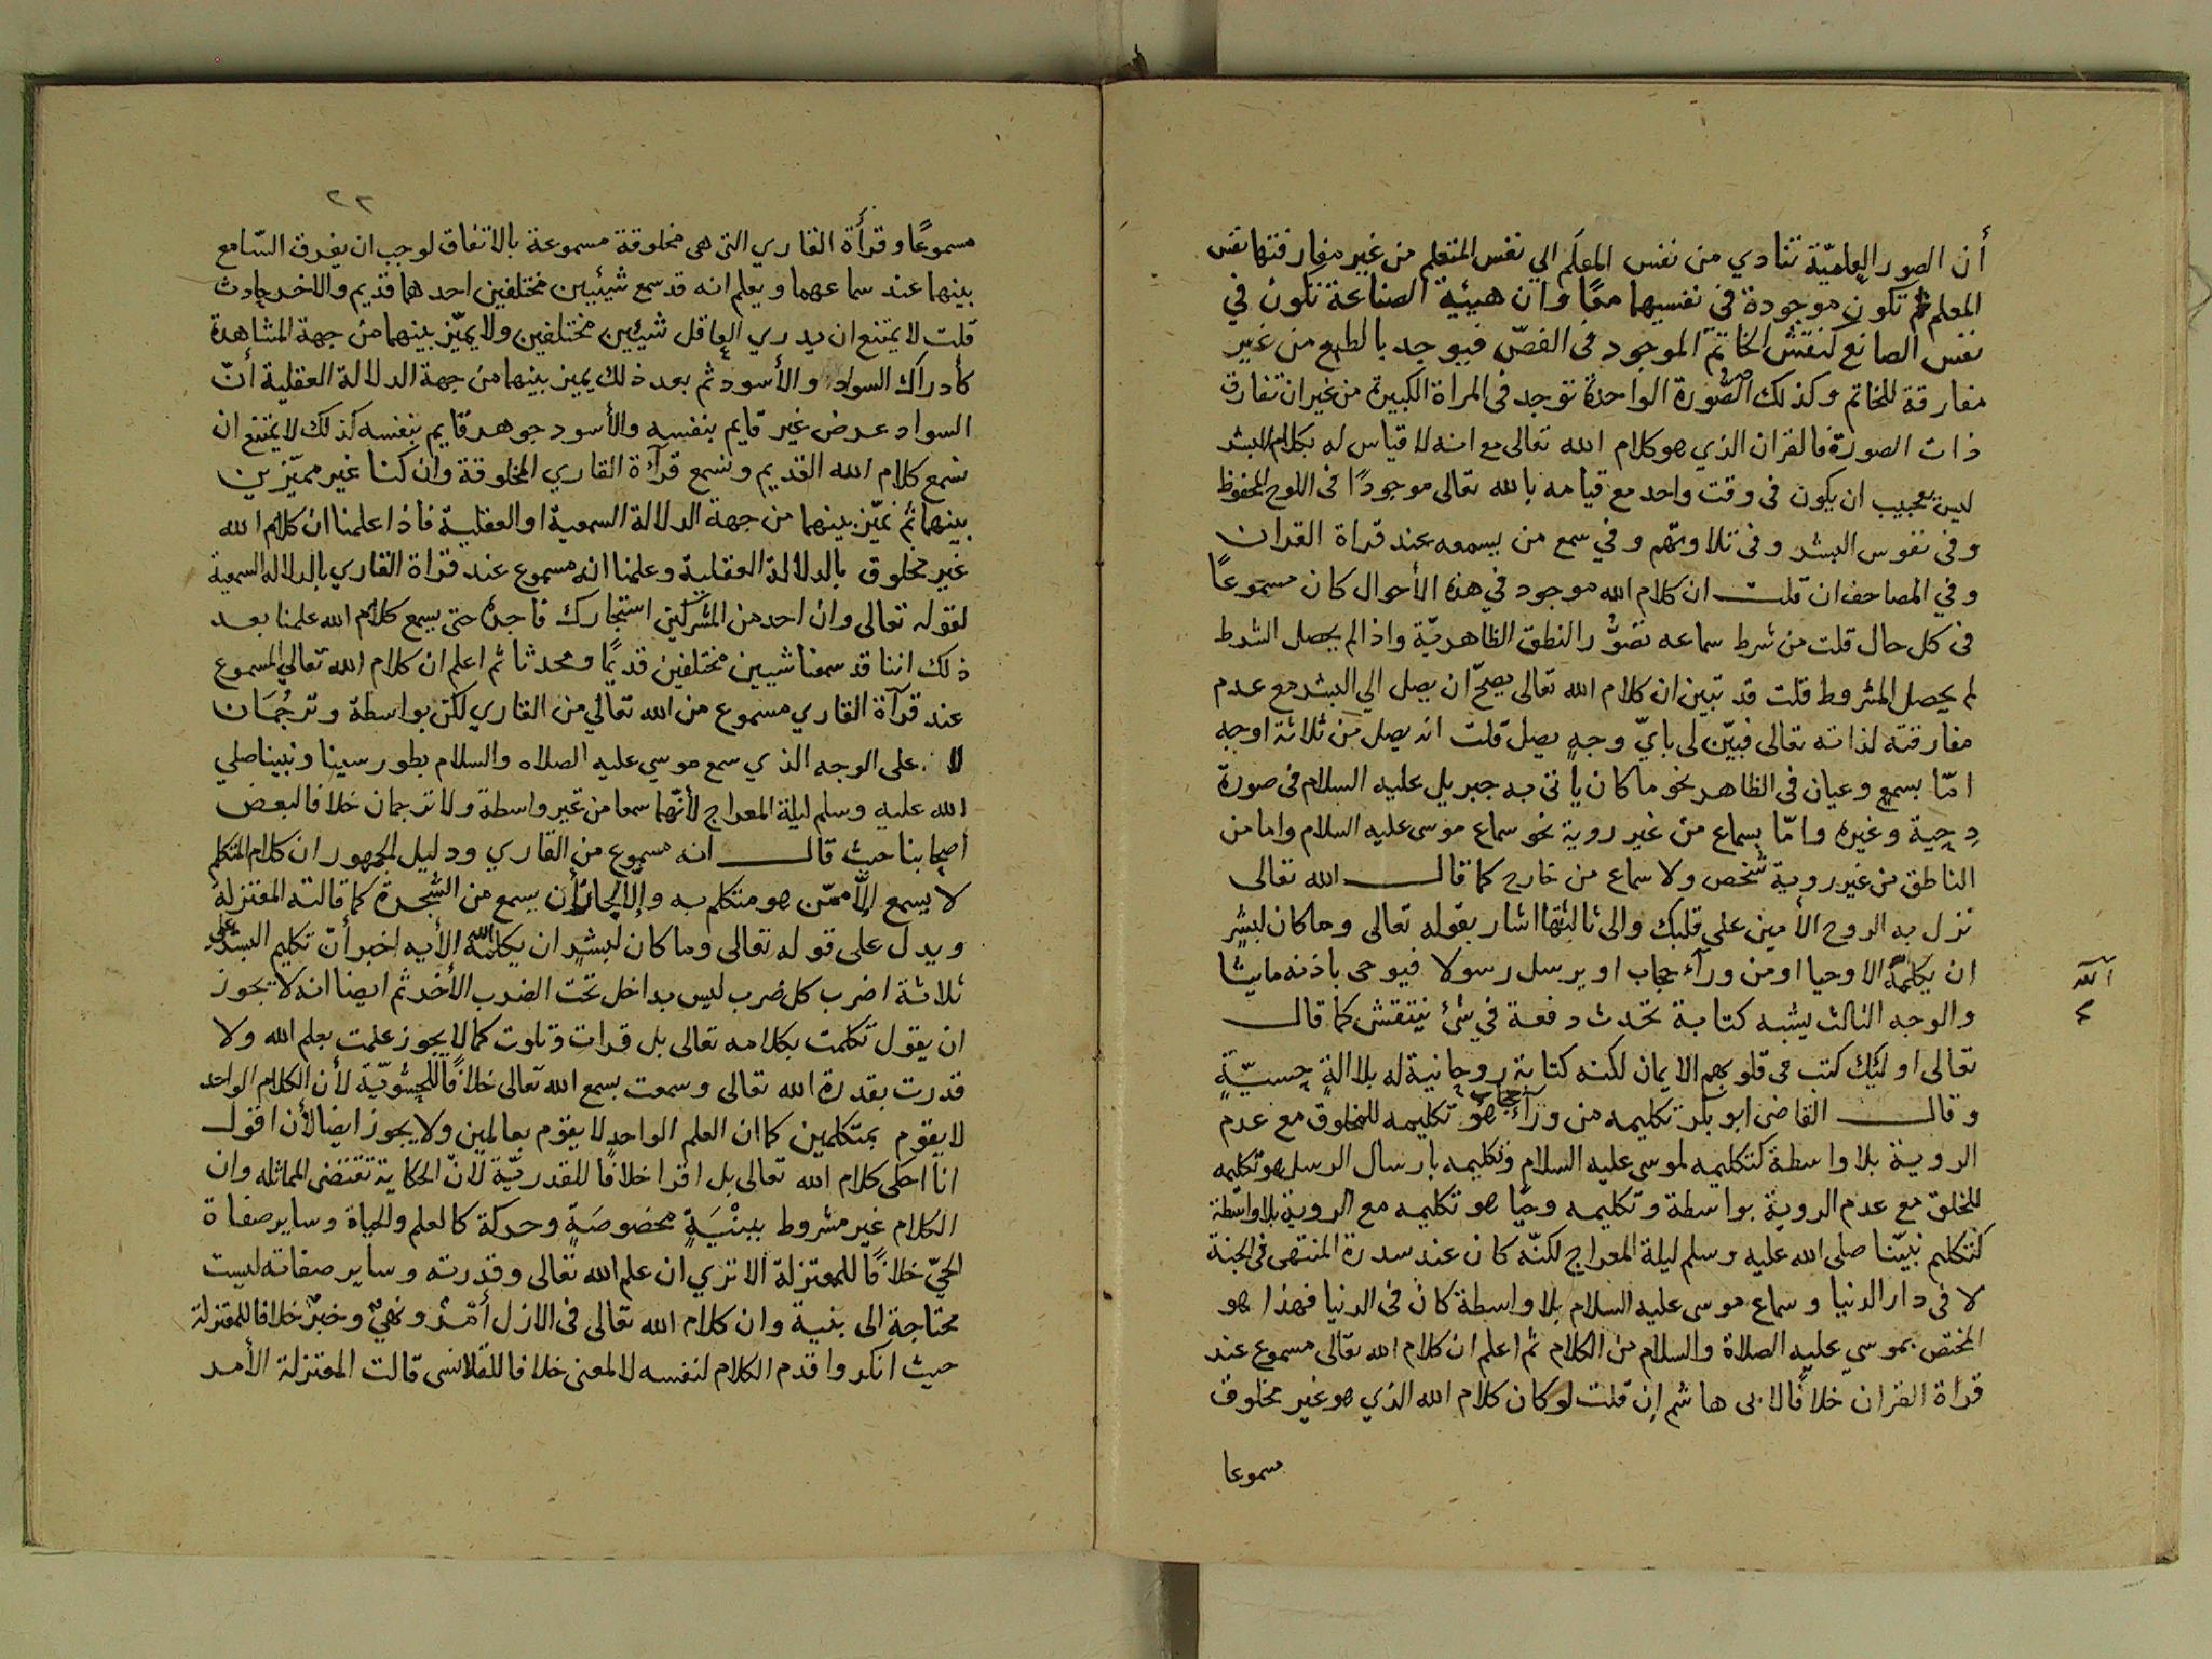 أن الصور العلميّة تتادي من نفس المعلم الي نفس المتعلم من غير مفارقتها نفس
المعلم ثم تكون موجودة في نفسيهما معًا وان هيئة الصناعة تكون في
نفس الصانع كنقش الخاتم الموجود في الفصّ فيوجد بالطبع من غير
مفارقة للخاتم وكذلك الصورة الواحدة توجد في المراة الكبيرة من غير ان تفارق
ذات الصورة فالقران الذي هو كلام الله تعالى مع انه لا قياس له بكلام البشر
ليس بعجيب ان يكون في وقت واحد مع قيامه بالله تعالى موجودًا في اللوح المحفوظ
وفي نفوس البشر وفي تلاوتهم وفي سمع من يسمعه عند قراة القران
وفي المصاحف ان قلت ان كلام الله موجود في هذه الأحوال كان مسموعًا
في كل حال قلت من شرط سماعه تصوُّر النطق الظاهريّة واذا لم يحصل الشرط
لم يحصل المشروط قلت قد تبين ان كلام الله تعالى يصحّ ان يصل الي البشر مع عدم
مفارقته لذاته تعالى فبيّن لى بايّ وجهٍ يصل قلت انه يصل من ثلاثة اوجه
امّا بسمع وعيان في الظاهر نحو ما كان يأتي به جبريل عليه السلام في صورة
دِحية وغيره وامّا بسماع من غير روية نحو سماع موسى عليه السلام واما من
الناطق من غير روية شخص ولا سماع من خارج كما قال الله تعالى
نزل به الروح الأمين علي قلبك والى ثالثتها اشار بقوله تعالى وما كان لبشرٍ
ان يكلمه الا وحيا او من ورآء حجاب او يرسل رسولا فيوحى باذنه ما يشا
الله
والوجه الثالث يشبه كتابة تحدث دفعة في شئ ينتقش كما قال
تعالى اولئك كتب في قلوبهم الايمان لكنه كتابة روحانية له بلا الةٍ حِسيّةٍ
وقال القاضى ابو بكر تكليمه من ورآء حجاب هو تكليمه للمخلوق مع عدم
الروية بلا واسطة كتكليمه لموسى عليه السلام وتكليمه بارسال الرسل هو تكليمه
للخلق مع عدم الروية بواسطة وتكليمه وحيًا هو تكليمه مع الروية بلا واسطة
كتكليم نبيّنا صلى الله عليه وسلم ليلة المعراج لكنّه كان عند سدرة المنتهى في الجنة
لا في دار الدنيا وسماع موسى عليه السلام بلا واسطة كان في الدنيا فهذا هو
المختص بموسي عليه الصلاة والسلام من الكلام ثم اعلم ان كلام الله تعالى مسموع عند
قراة القران خلافًا لابى هاشم ان قلت لو كان كلام الله الذي هو غير مخلوق
مسموعا
٢٢
مسموعًا وقرأة القاري التى هى مخلوقة مسموعة بالاتفاق لوجب ان يفرق السّامع
بينهما عند سماعهما ويعلم انه قد سمع شيئين مختلفين احدهما قديم والاخر حادث
قلت لا يمتنع ان يدري العاقل شيئين مختلفين ولا يميّز بينهما من جهة المشاهدة
كأدراك السواد والأسود ثم بعد ذلك يميز بينهما من جهة الدلالة العقلية أنّ
السواد عرض غير قايم بنفسه والأسود جوهر قايم بنفسه كذلك لا يمتنع ان
نسمع كلام الله القديم ونسمع قرآة القاري المخلوقة وان كنا غير مميّزين
بينهما ثم نميّز بينهما من جهة الدلالة السمعية او العقلية فاذا علمنا ان كلام الله
غير مخلوق بالدلالة العقلية وعلمنا انه مسموع عند قراة القاري بالدلالة السمعية
لقوله تعالى وان احد من المشركين استجارك فاجره حتى يسمع كلام الله علمنا بعد
ذلك اننا قد سمعنا شيين مختلفين قديمًا ومحدثا ثم اعلم ان كلام الله تعالي المسموع
عند قرآة القاري مسموع من الله تعالي من القاري لكن بواسطة وترجُمَان
لا على الوجه الذي سمع موسي عليه الصلاه والسلام بطور سينا ونبينا صلي
الله عليه وسلم ليلة المعراج لأنّهما سمعا من غير واسطة ولا ترجمان خلافا لبعض
أصحابنا حيث قال انه مسموع من القاري ودليل الجمهور ان كلام المتكلم
لا يسمع إلّا ممّن هو متكلم به وإلا لجاز أن يسمع من الشجرة كما قالته المعتزلة
ويدل على قوله تعالى وما كان لبشر ان يكلمه الله الأيه اخبر أنّ تكليم البشر على
ثلاثة اضرب كل ضرب ليس بداخل تحت الضرب الأخر ثم ايضا انه لا يجوز
ان يقول تكلمت بكلامه تعالى بل قرات وتلوت كما لا يجوز علمت بعلم الله ولا
قدرت بقدرة الله تعالى وسمعت بسمع الله تعالى خلافًا للحشويّة لأن الكلام الواحد
لا يقوم بمتكلمين كما ان العلم الواحد لا يقوم بعالمين ولا يجوز ايضا لأن اقول
انا احكى كلام الله تعالى بل اقرا خلافًا للقدريّة لانّ الحكاية تقتضى المماثله وان
الكلام غير مشروط ببنْيَةٍ مخصوصَةٍ وحركة كالعلم والحياة وساير صفاة
الحيّ خلافًا للمعتزلة الا تري ان علم الله تعالى وقدرته وساير صفاته ليست
محتاجة الى بنية وان كلام الله تعالى في الازل أمْرٌ ونهيٌ وخبرٌ خلافا للمعتزلة
حيث انكروا قدم الكلام لنفسه لا لمعنى خلافا للقلانسى قالت المعتزلة الأمر